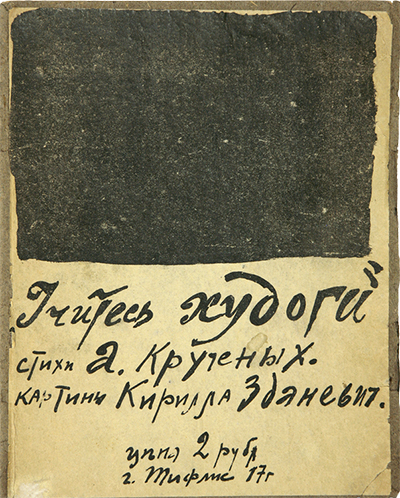 Учитесь худоги
стихи А. Крученых.
картины Кирилла Зданевич.
цина 2 рубл
г. Тифлис 17г